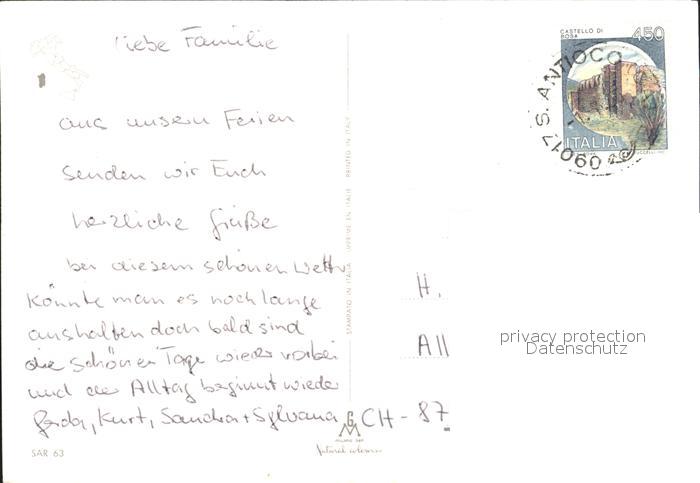 liebe Familie
aus unsern Ferien
senden wir Euch
herzliche Grüße
bei diesem schönen Wetter
könnte man es noch lange
aushalten doch bald sind
die schönen Tage wieder vorbei
und der Alltag beginnt wieder
Gerda, Kurt, Sandra + Sylvana
SAR 63
STAMPATO IN ITALIA IMPRIMÉ EN ITALIE PRINTED IN ITALY
GM
MILANO
Natural colour
CASTELLO DI
BOSA
450
ITALIA
09017 S. ANTIOCO
H.
All
CH - 87
privacy protection
Datenschutz